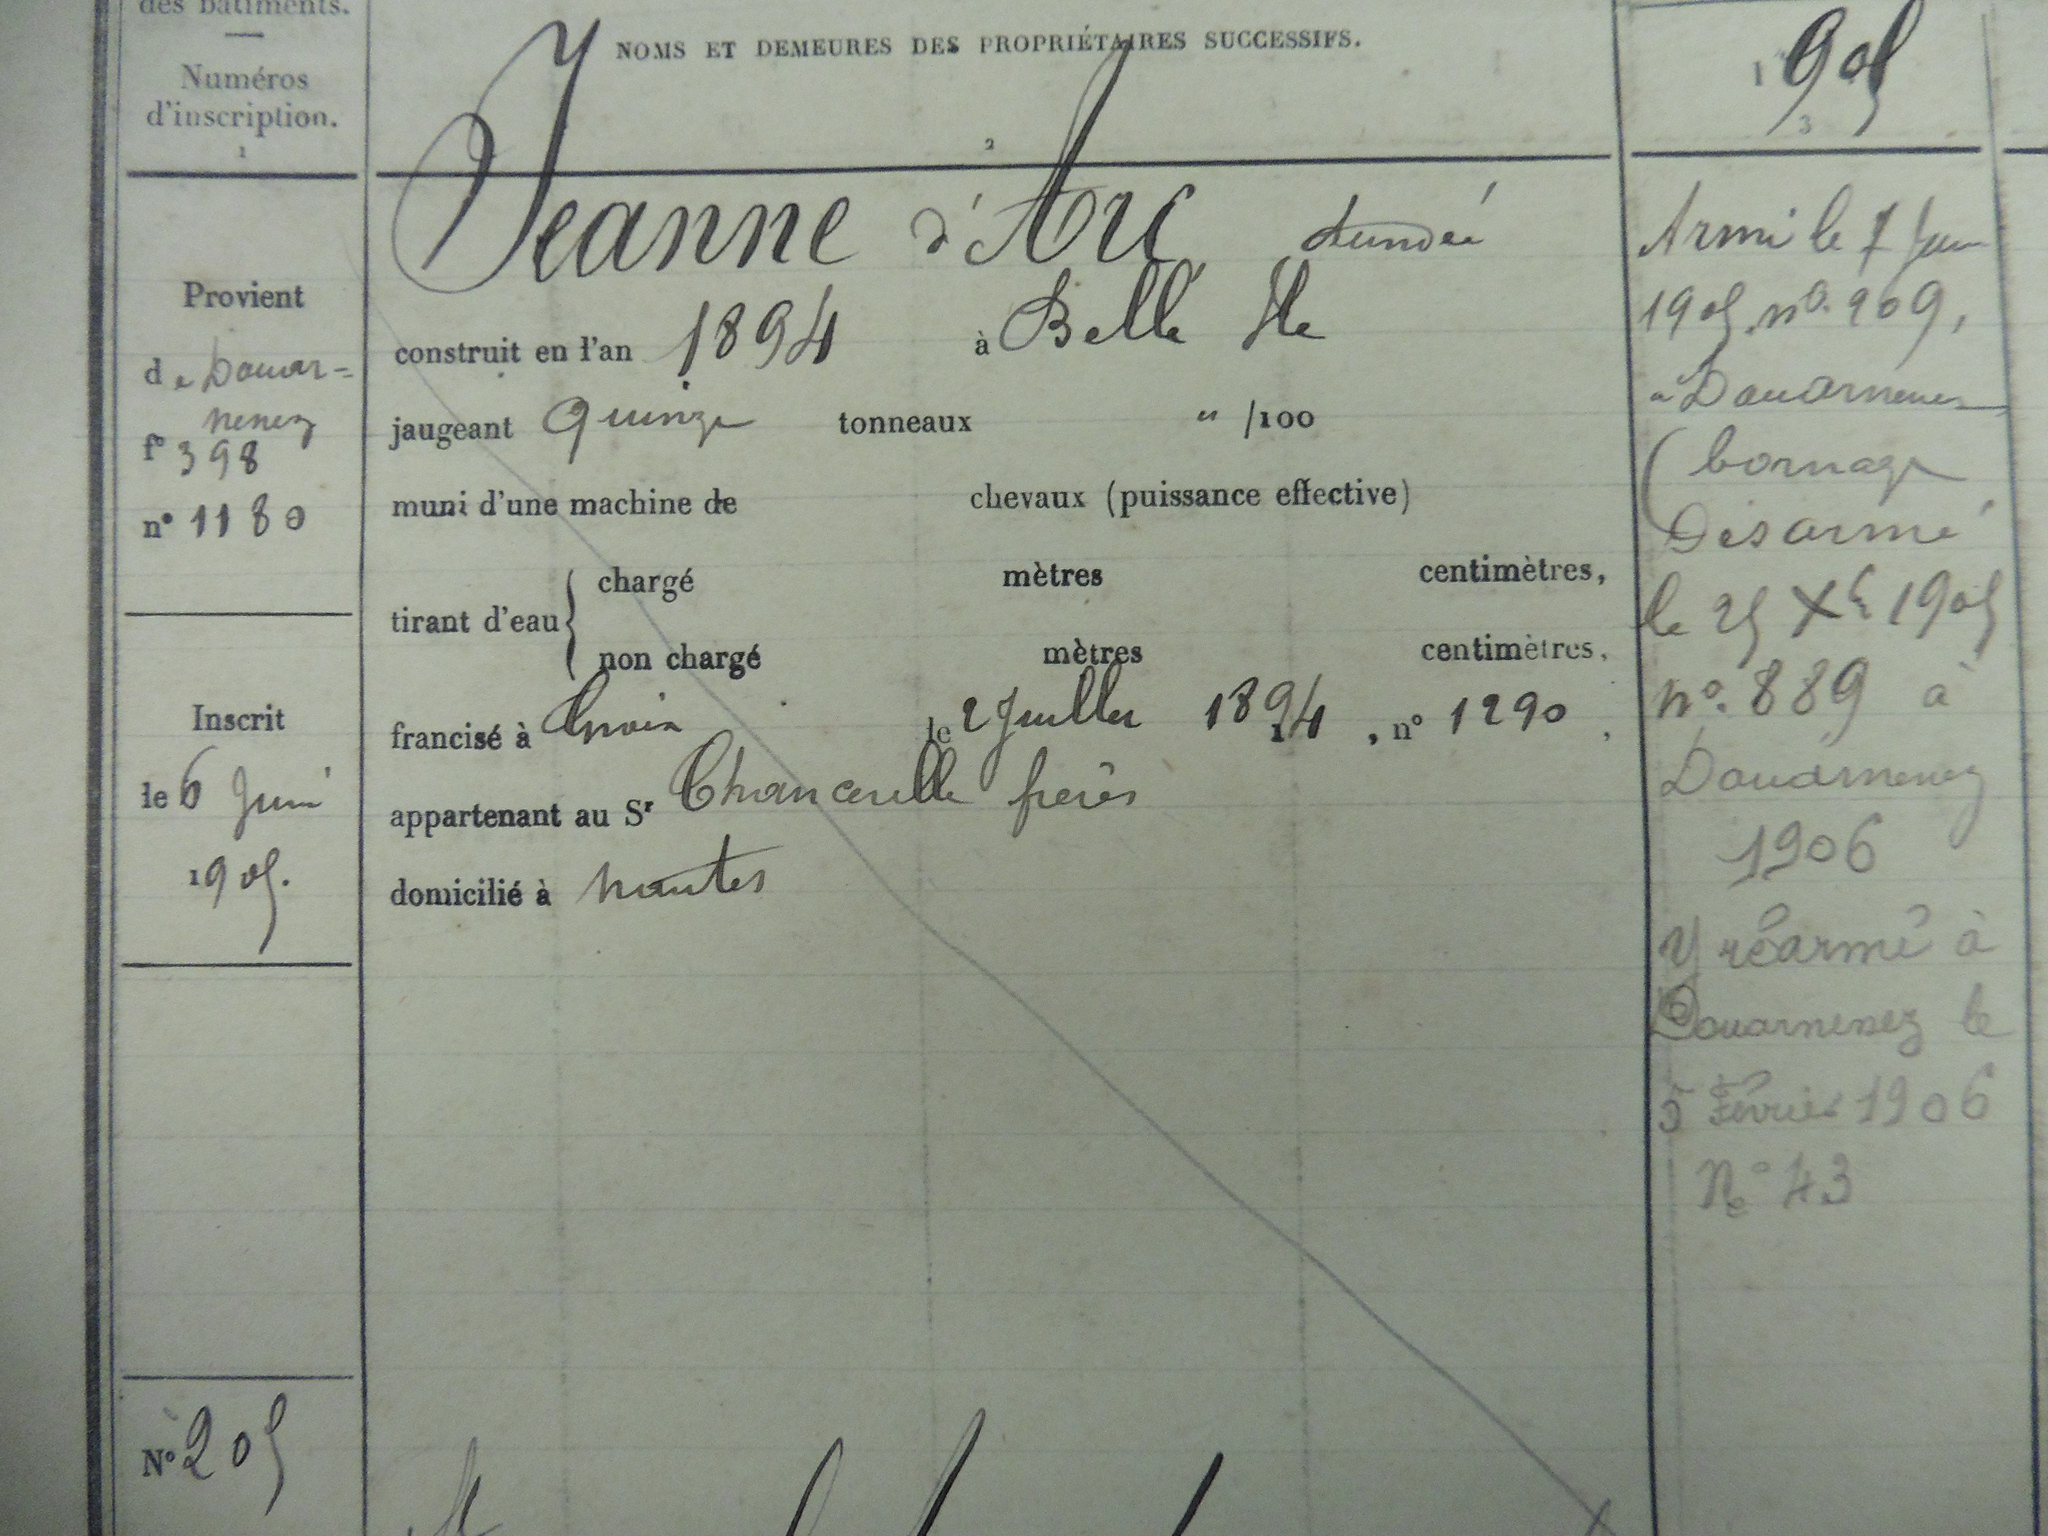 des bâtiments.
Numéros
d'inscription.
1
NOMS ET DEMEURES DES PROPRIÉTAIRES SUCCESSIFS.
2
1905
3
Provient
de Douar=
nenez
f° 398
n° 1180
Inscrit
le 6 Juin
1905.
N° 205
Jeanne d'Arc dundée
construit en l'an 1894 à Belle Ile
jaugeant quinze tonneaux " /100
muni d'une machine de chevaux (puissance effective)
tirant d'eau
chargé mètres centimètres,
non chargé mètres centimètres,
francisé à Groix le 2 Juillet 1894, n° 1290,
appartenant au Sr Chancerelle frères
domicilié à Nantes
Armé le 7 Juin
1905. n°. 209,
à Douarnenez
(bornage
Désarmé
le 25 Xbre 1905
n°. 889 à
Douarnenez
1906
Y réarmé à
Douarnenez le
5 Février 1906
N° 43